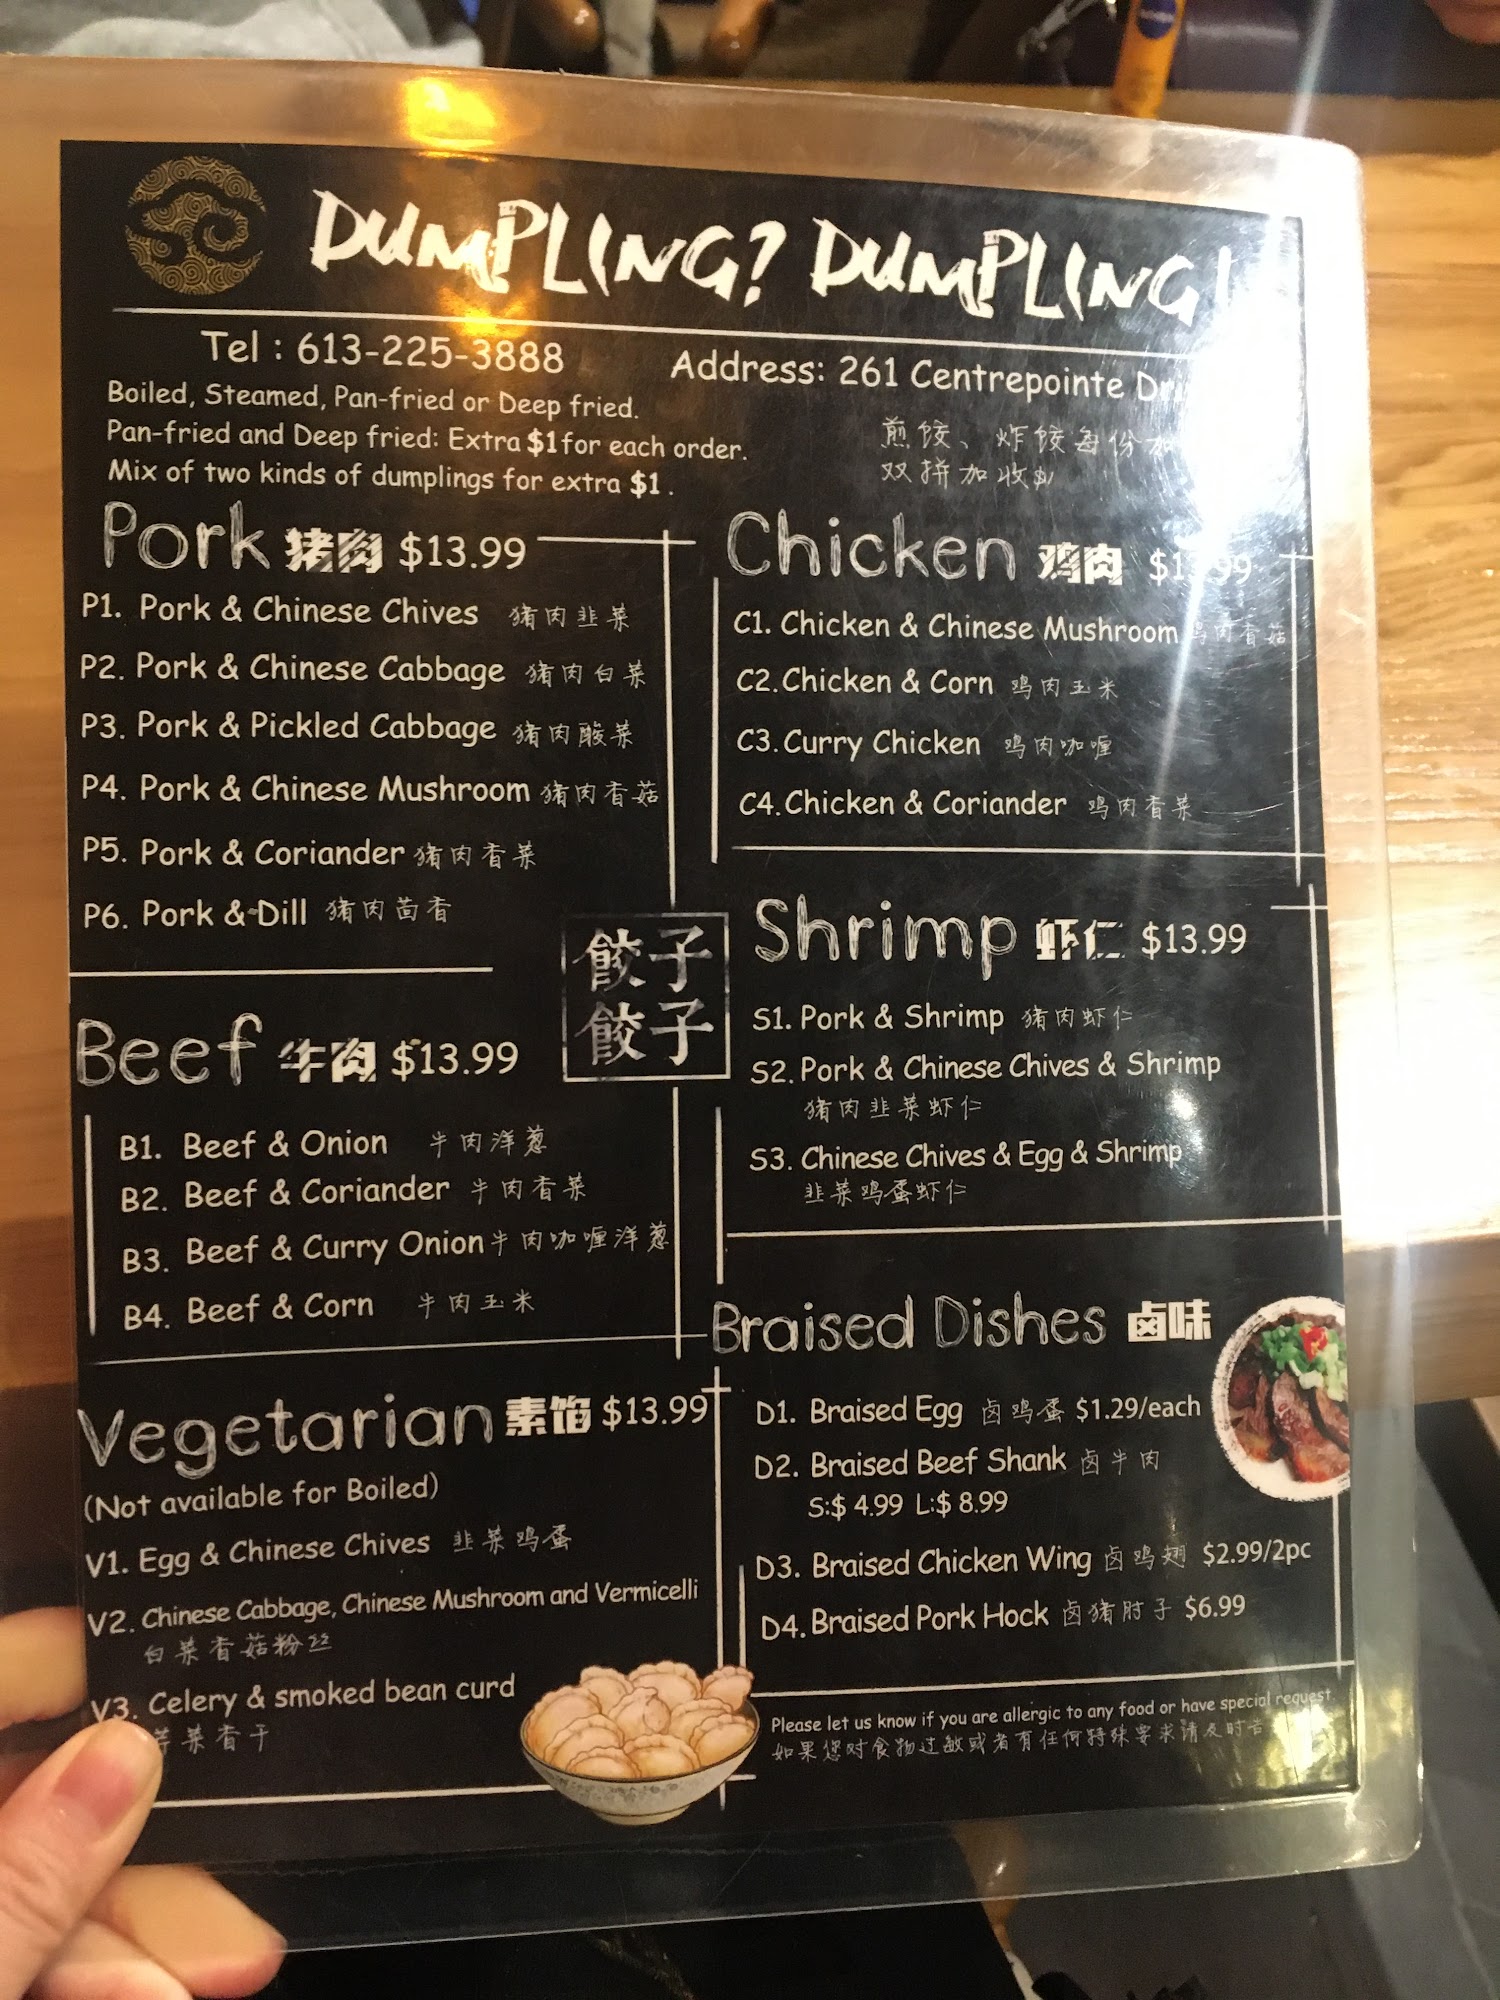 DUMPLING? DUMPLING!
Tel : 613-225-3888
Address: 261 Centrepointe
Boiled, Steamed, Pan-fried or Deep fried.
Pan-fried and Deep fried: Extra $1 for each order.
Mix of two kinds of dumplings for extra $1.
煎饺、炸饺每份加
双拼加收$1
Pork 猪肉 $13.99
P1. Pork & Chinese Chives 猪肉韭菜
P2. Pork & Chinese Cabbage 猪肉白菜
P3. Pork & Pickled Cabbage 猪肉酸菜
P4. Pork & Chinese Mushroom 猪肉香菇
P5. Pork & Coriander 猪肉香菜
P6. Pork & Dill 猪肉茴香
Chicken 鸡肉
C1. Chicken & Chinese Mushroom 鸡肉香菇
C2. Chicken & Corn 鸡肉玉米
C3. Curry Chicken 鸡肉咖喱
C4. Chicken & Coriander 鸡肉香菜
餃子
餃子
Beef 牛肉 $13.99
B1. Beef & Onion 牛肉洋葱
B2. Beef & Coriander 牛肉香菜
B3. Beef & Curry Onion 牛肉咖喱洋葱
B4. Beef & Corn 牛肉玉米
Shrimp 虾仁 $13.99
S1. Pork & Shrimp 猪肉虾仁
S2. Pork & Chinese Chives & Shrimp
猪肉韭菜虾仁
S3. Chinese Chives & Egg & Shrimp
韭菜鸡蛋虾仁
Vegetarian 素馅 $13.99
(Not available for Boiled)
V1. Egg & Chinese Chives 韭菜鸡蛋
V2. Chinese Cabbage, Chinese Mushroom and Vermicelli
白菜香菇粉丝
V3. Celery & smoked bean curd
芹菜香干
Braised Dishes 卤味
D1. Braised Egg 卤鸡蛋 $1.29/each
D2. Braised Beef Shank 卤牛肉
S:$ 4.99 L:$ 8.99
D3. Braised Chicken Wing 卤鸡翅 $2.99/2pc
D4. Braised Pork Hock 卤猪肘子 $6.99
Please let us know if you are allergic to any food or have special request
如果您对食物过敏或者有任何特殊要求请及时告